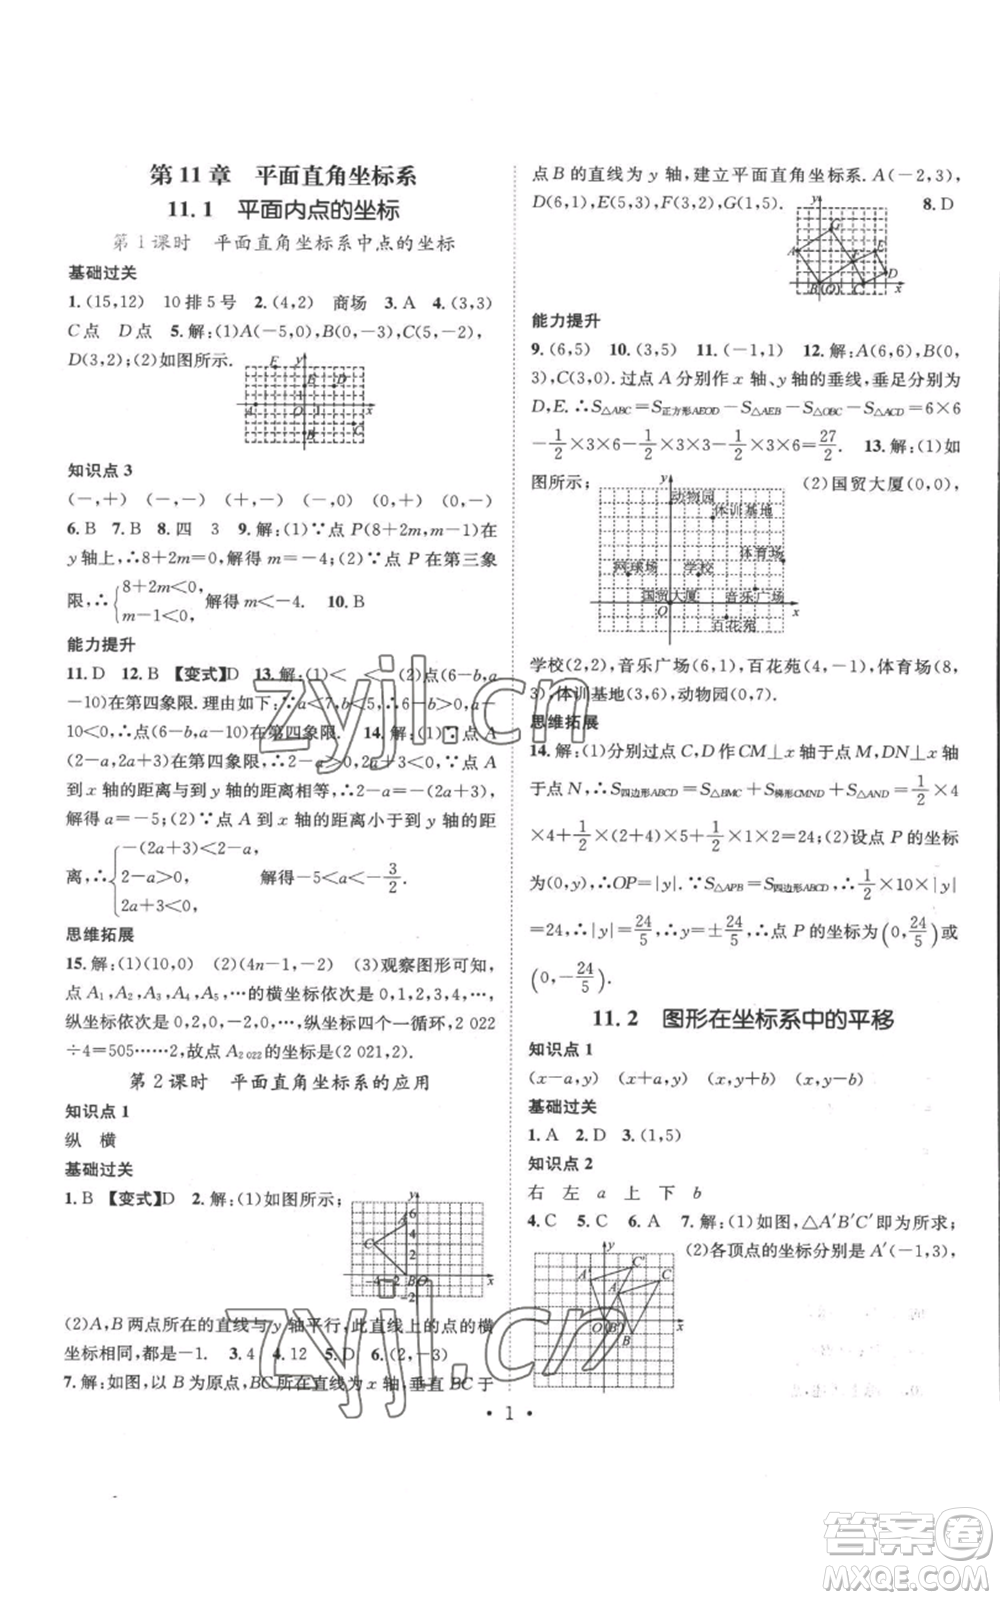 第11章　平面直角坐标系
11.1　平面内点的坐标
第1课时　平面直角坐标系中点的坐标
基础过关
1.(15,12)　10排5号　2.(4,2)　商场　3.A　4.(3,3)
C点　D点　5.解:(1)A(-5,0),B(0,-3),C(5,-2),
D(3,2);(2)如图所示.
知识点3
(-,+)　(-,-)　(+,-)　(-,0)　(0,+)　(0,-)
6.B　7.B　8.四　3　9.解:(1)∵点P(8+2m,m-1)在
y轴上,∴8+2m=0,解得m=-4;(2)∵点P在第三象
限,∴{8+2m<0, m-1<0, 解得m<-4.　10.B
能力提升
11.D　12.B　【变式】D　13.解:(1)<　<　(2)点(6-b,a
-10)在第四象限.理由如下:∵a<7,b<5,∴6-b>0,a-
10<0,∴点(6-b,a-10)在第四象限.　14.解:(1)∵点A
(2-a,2a+3)在第四象限,∴2-a>0,2a+3<0.∵点A
到x轴的距离与到y轴的距离相等,∴2-a=-(2a+3),
解得a=-5;(2)∵点A到x轴的距离小于到y轴的距
离,∴{-(2a+3)<2-a, 2-a>0, 2a+3<0, 解得-5<a<-3/2.
思维拓展
15.解:(1)(10,0)　(2)(4n-1,-2)　(3)观察图形可知,
点A₁,A₂,A₃,A₄,A₅,…的横坐标依次是0,1,2,3,4,…,
纵坐标依次是0,2,0,-2,0,…,纵坐标四个一循环,2 022
÷4=505……2,故点A₂ ₀₂₂的坐标是(2 021,2).
第2课时　平面直角坐标系的应用
知识点1
纵　横
基础过关
1.B　【变式】D　2.解:(1)如图所示;
(2)A,B两点所在的直线与y轴平行,此直线上的点的横
坐标相同,都是-1.　3.4　4.12　5.D　6.(2,-3)
7.解:如图,以B为原点,BC所在直线为x轴,垂直BC于
点B的直线为y轴,建立平面直角坐标系.A(-2,3),
D(6,1),E(5,3),F(3,2),G(1,5).　8.D
能力提升
9.(6,5)　10.(3,5)　11.(-1,1)　12.解:A(6,6),B(0,
3),C(3,0).过点A分别作x轴、y轴的垂线,垂足分别为
D,E.∴S△ABC=S正方形AEOD-S△AEB-S△OBC-S△ACD=6×6
-1/2×3×6-1/2×3×3-1/2×3×6=27/2.　13.解:(1)如
图所示;　(2)国贸大厦(0,0),
动物园
体训基地
体育场
网球场　学校
国贸大厦　音乐广场
百花苑
学校(2,2),音乐广场(6,1),百花苑(4,-1),体育场(8,
3),体训基地(3,6),动物园(0,7).
思维拓展
14.解:(1)分别过点C,D作CM⊥x轴于点M,DN⊥x轴
于点N,S四边形ABCD=S△BMC+S梯形CMND+S△AND=1/2×4
×4+1/2×(2+4)×5+1/2×1×2=24;(2)设点P的坐标
为(0,y),∴OP=|y|.∵S△APB=S四边形ABCD,∴1/2×10×|y|
=24,∴|y|=24/5,∴y=±24/5,∴点P的坐标为(0,24/5)或
(0,-24/5).
11.2　图形在坐标系中的平移
知识点1
(x-a,y)　(x+a,y)　(x,y+b)　(x,y-b)
基础过关
1.A　2.D　3.(1,5)
知识点2
右　左　a　上　下　b
4.C　5.C　6.A　7.解:(1)如图,△A′B′C′即为所求;
(2)各顶点的坐标分别是A′(-1,3),
• 1 •
zyjl.cn
zyjl.cn
答案卷
MXQE.COM